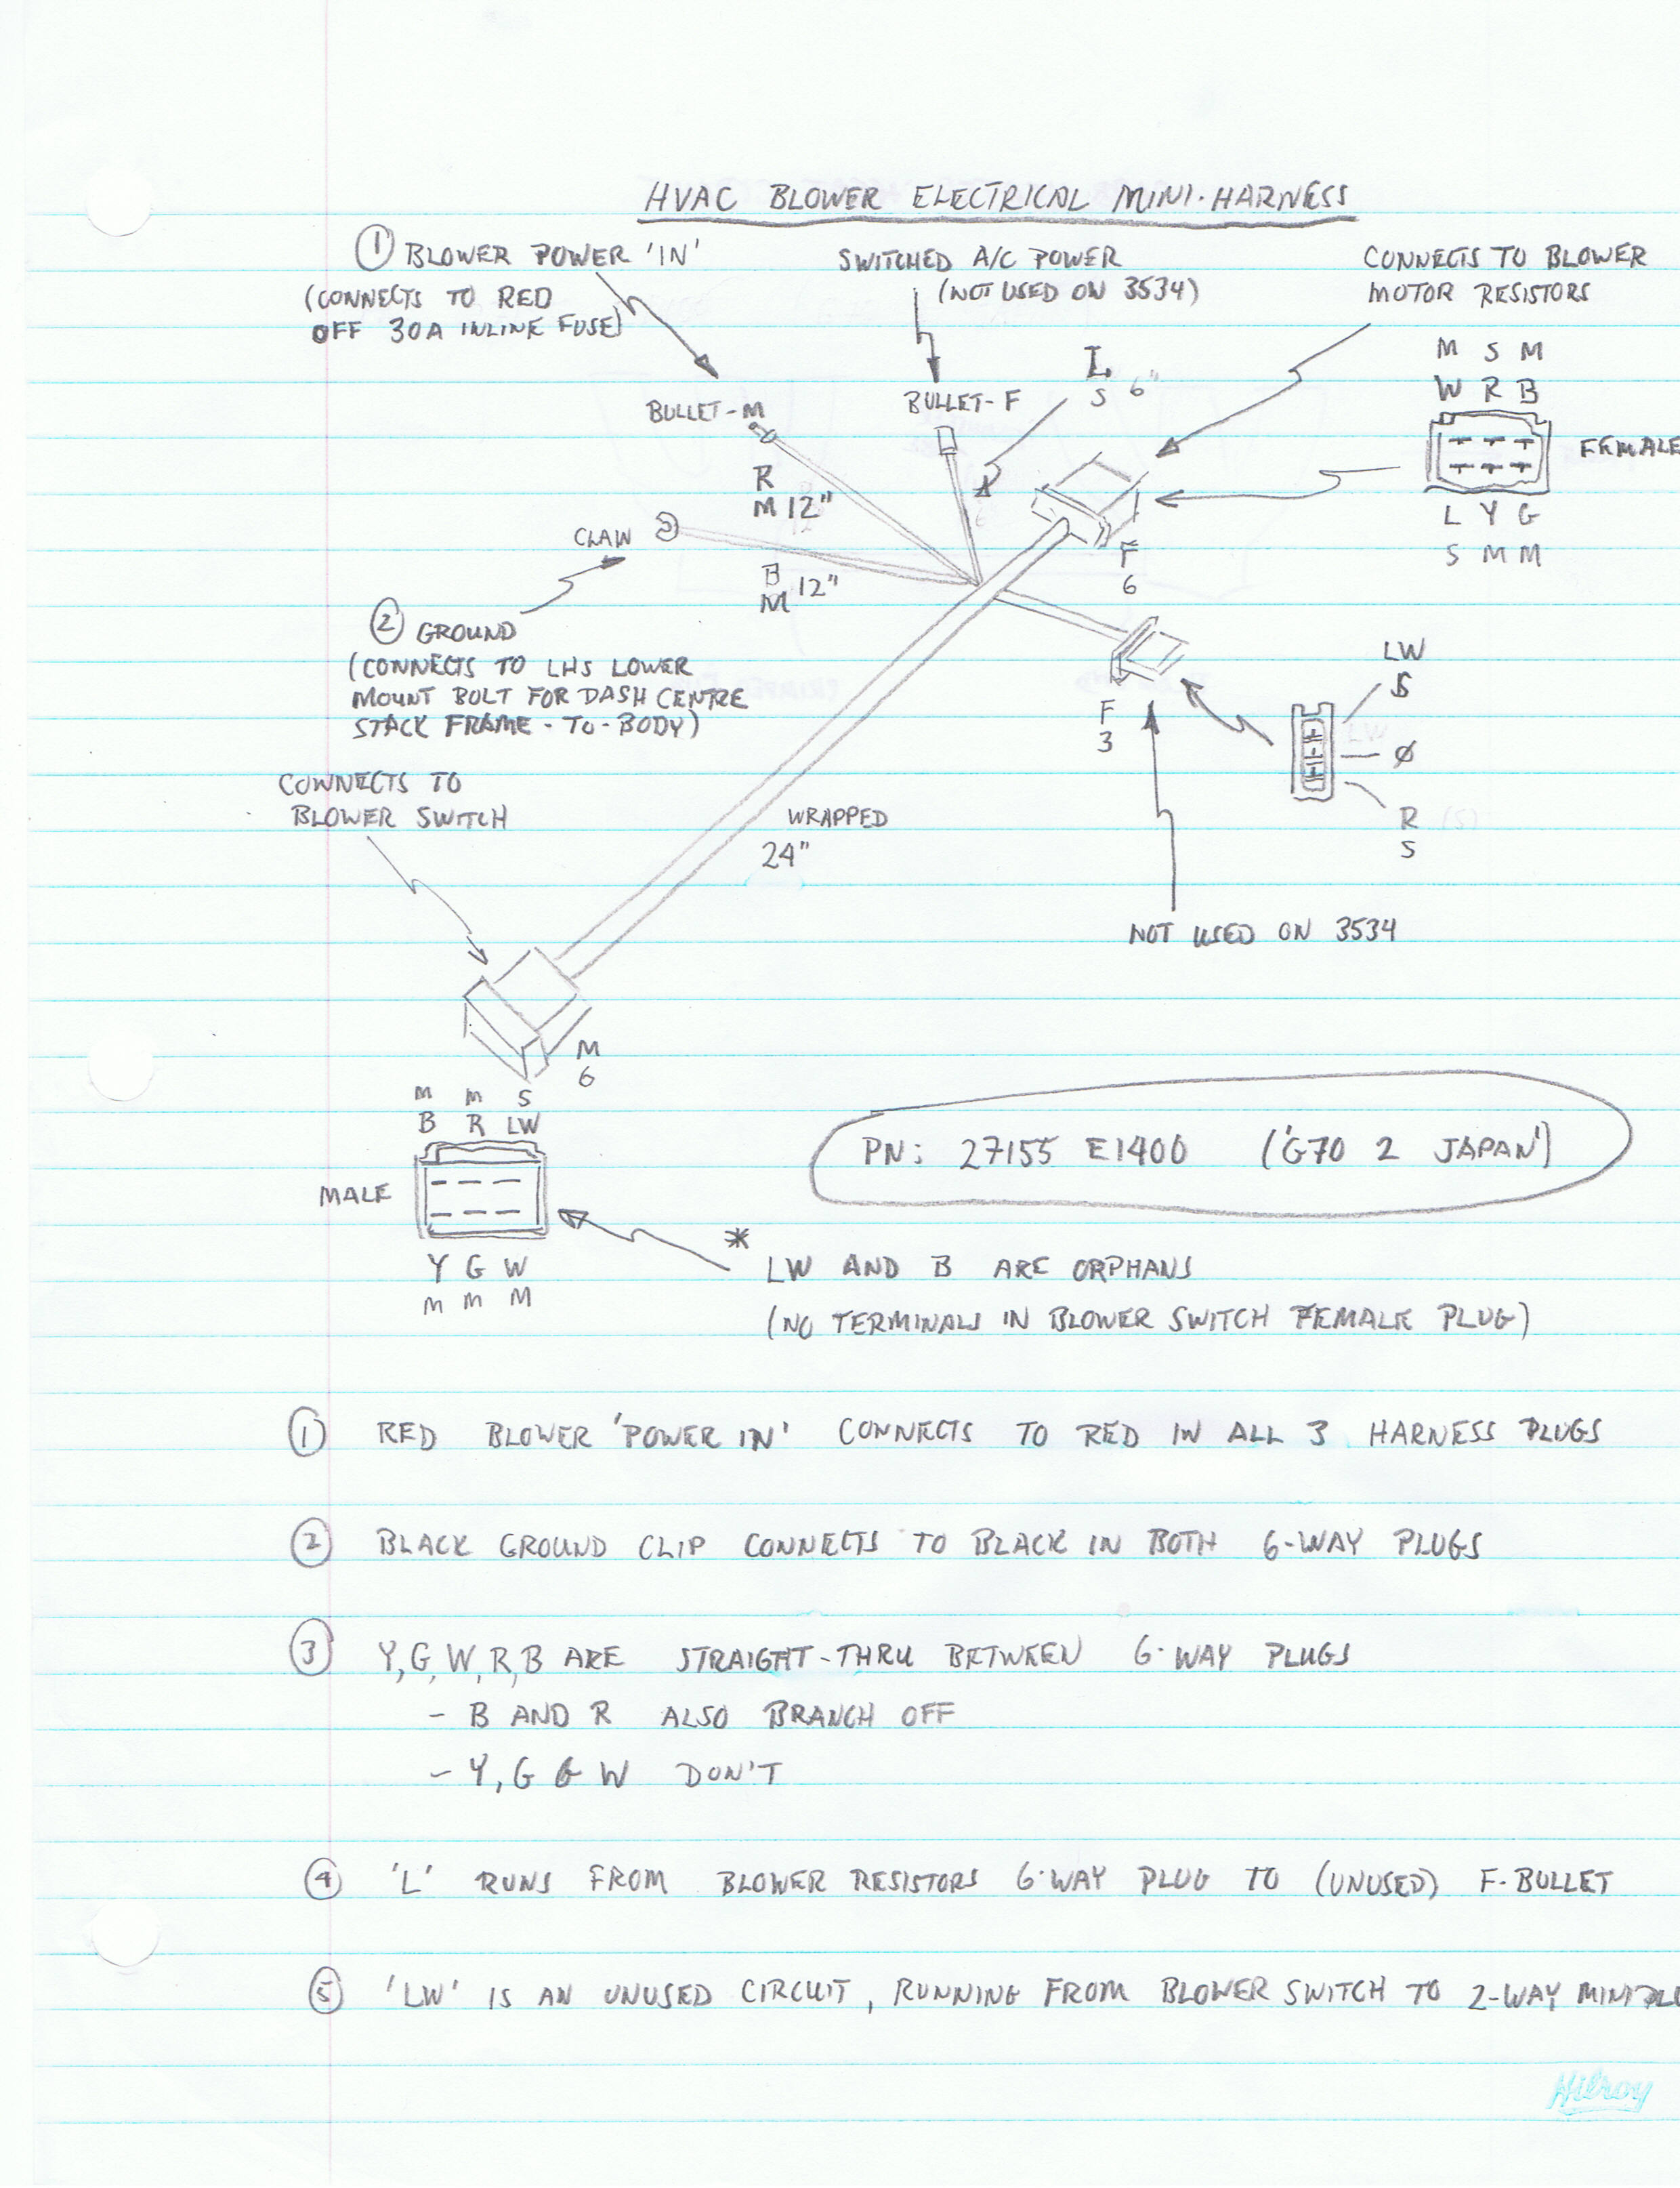 HVAC BLOWER ELECTRICAL MINI-HARNESS
① BLOWER POWER 'IN'
(CONNECTS TO RED
OFF 30A INLINE FUSE)
SWITCHED A/C POWER
(NOT USED ON 3534)
CONNECTS TO BLOWER
MOTOR RESISTORS
M S M
W R B
FEMALE
L Y G
S M M
BULLET-M
BULLET-F
L
S 6"
R
M 12"
CLAW
B
M 12"
F
6
② GROUND
(CONNECTS TO LHS LOWER
MOUNT BOLT FOR DASH CENTRE
STACK FRAME-TO-BODY)
LW
S
Ø
R
S
F
3
CONNECTS TO
BLOWER SWITCH
WRAPPED
24"
NOT USED ON 3534
M
6
M M S
B R LW
MALE
Y G W
M M M
PN: 27155 E1400 ('G70 2 JAPAN')
* LW AND B ARE ORPHANS
(NO TERMINALS IN BLOWER SWITCH FEMALE PLUG)
① RED BLOWER 'POWER IN' CONNECTS TO RED IN ALL 3 HARNESS PLUGS
② BLACK GROUND CLIP CONNECTS TO BLACK IN BOTH 6-WAY PLUGS
③ Y, G, W, R, B ARE STRAIGHT-THRU BETWEEN 6-WAY PLUGS
- B AND R ALSO BRANCH OFF
- Y, G & W DON'T
④ 'L' RUNS FROM BLOWER RESISTORS 6-WAY PLUG TO (UNUSED) F-BULLET
⑤ 'LW' IS AN UNUSED CIRCUIT, RUNNING FROM BLOWER SWITCH TO 2-WAY MINIPLU
Hilroy